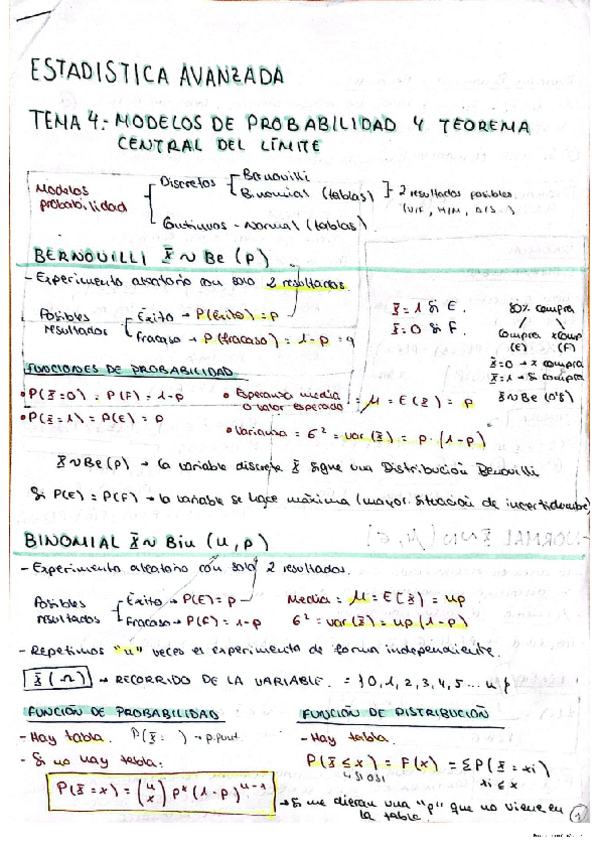 ESTADISTICA AVANZADA
TEMA 4.- MODELOS DE PROBABILIDAD Y TEOREMA
CENTRAL DEL LÍMITE
Modelos probabilidad
Discretos
Bernouilli
Binomial (tablas)
2 resultados posibles
(V/F, H/M,
Continuos - Normal (tablas)
BERNOUILLI X ~ Be (p)
- Experimento aleatorio con solo 2 resultados.
Posibles resultados
Éxito → P(éxito) = p
Fracaso → P(fracaso) = 1-p = q
X = 1 si E.
X = 0 si F.
80% compra
Compra xComp
(E) (F)
X=0 → x compra
X=1 → Si compra
X~Be (0'8)
FUNCIONES DE PROBABILIDAD
• P(X=0) = P(F) = 1-p
• P(X=1) = P(E) = p
• Esperanza media o valor esperado = μ = E(X) = p
• Varianza = σ² = var(X) = p·(1-p)
X~Be(p) → la variable discreta X sigue una Distribución Benouilli
Si P(E) = P(F) → la variable se hace máxima (mayor situación de incertidumbre)
BINOMIAL X~ Bin (n, p)
- Experimento aleatorio con solo 2 resultados.
Posibles resultados
Éxito → P(E) = p
Fracaso → P(F) = 1-p
Media = μ = E(X) = np
σ² = var(X) = np(1-p)
- Repetimos "n" veces el experimento de forma independiente.
X(Ω) → RECORRIDO DE LA VARIABLE. = {0, 1, 2, 3, 4, 5... n}
FUNCIÓN DE PROBABILIDAD
- Hay tabla. P(X= ) → p.punt.
- Si no hay tabla:
P(X=x) = (n x) pˣ (1-p)ⁿ⁻¹
FUNCIÓN DE DISTRIBUCIÓN
- Hay tabla.
P(X≤x) = F(x) = ΣP(X=xi)
xi≤x
→ Si me dieran una "p" que no viene en la tabla.
1